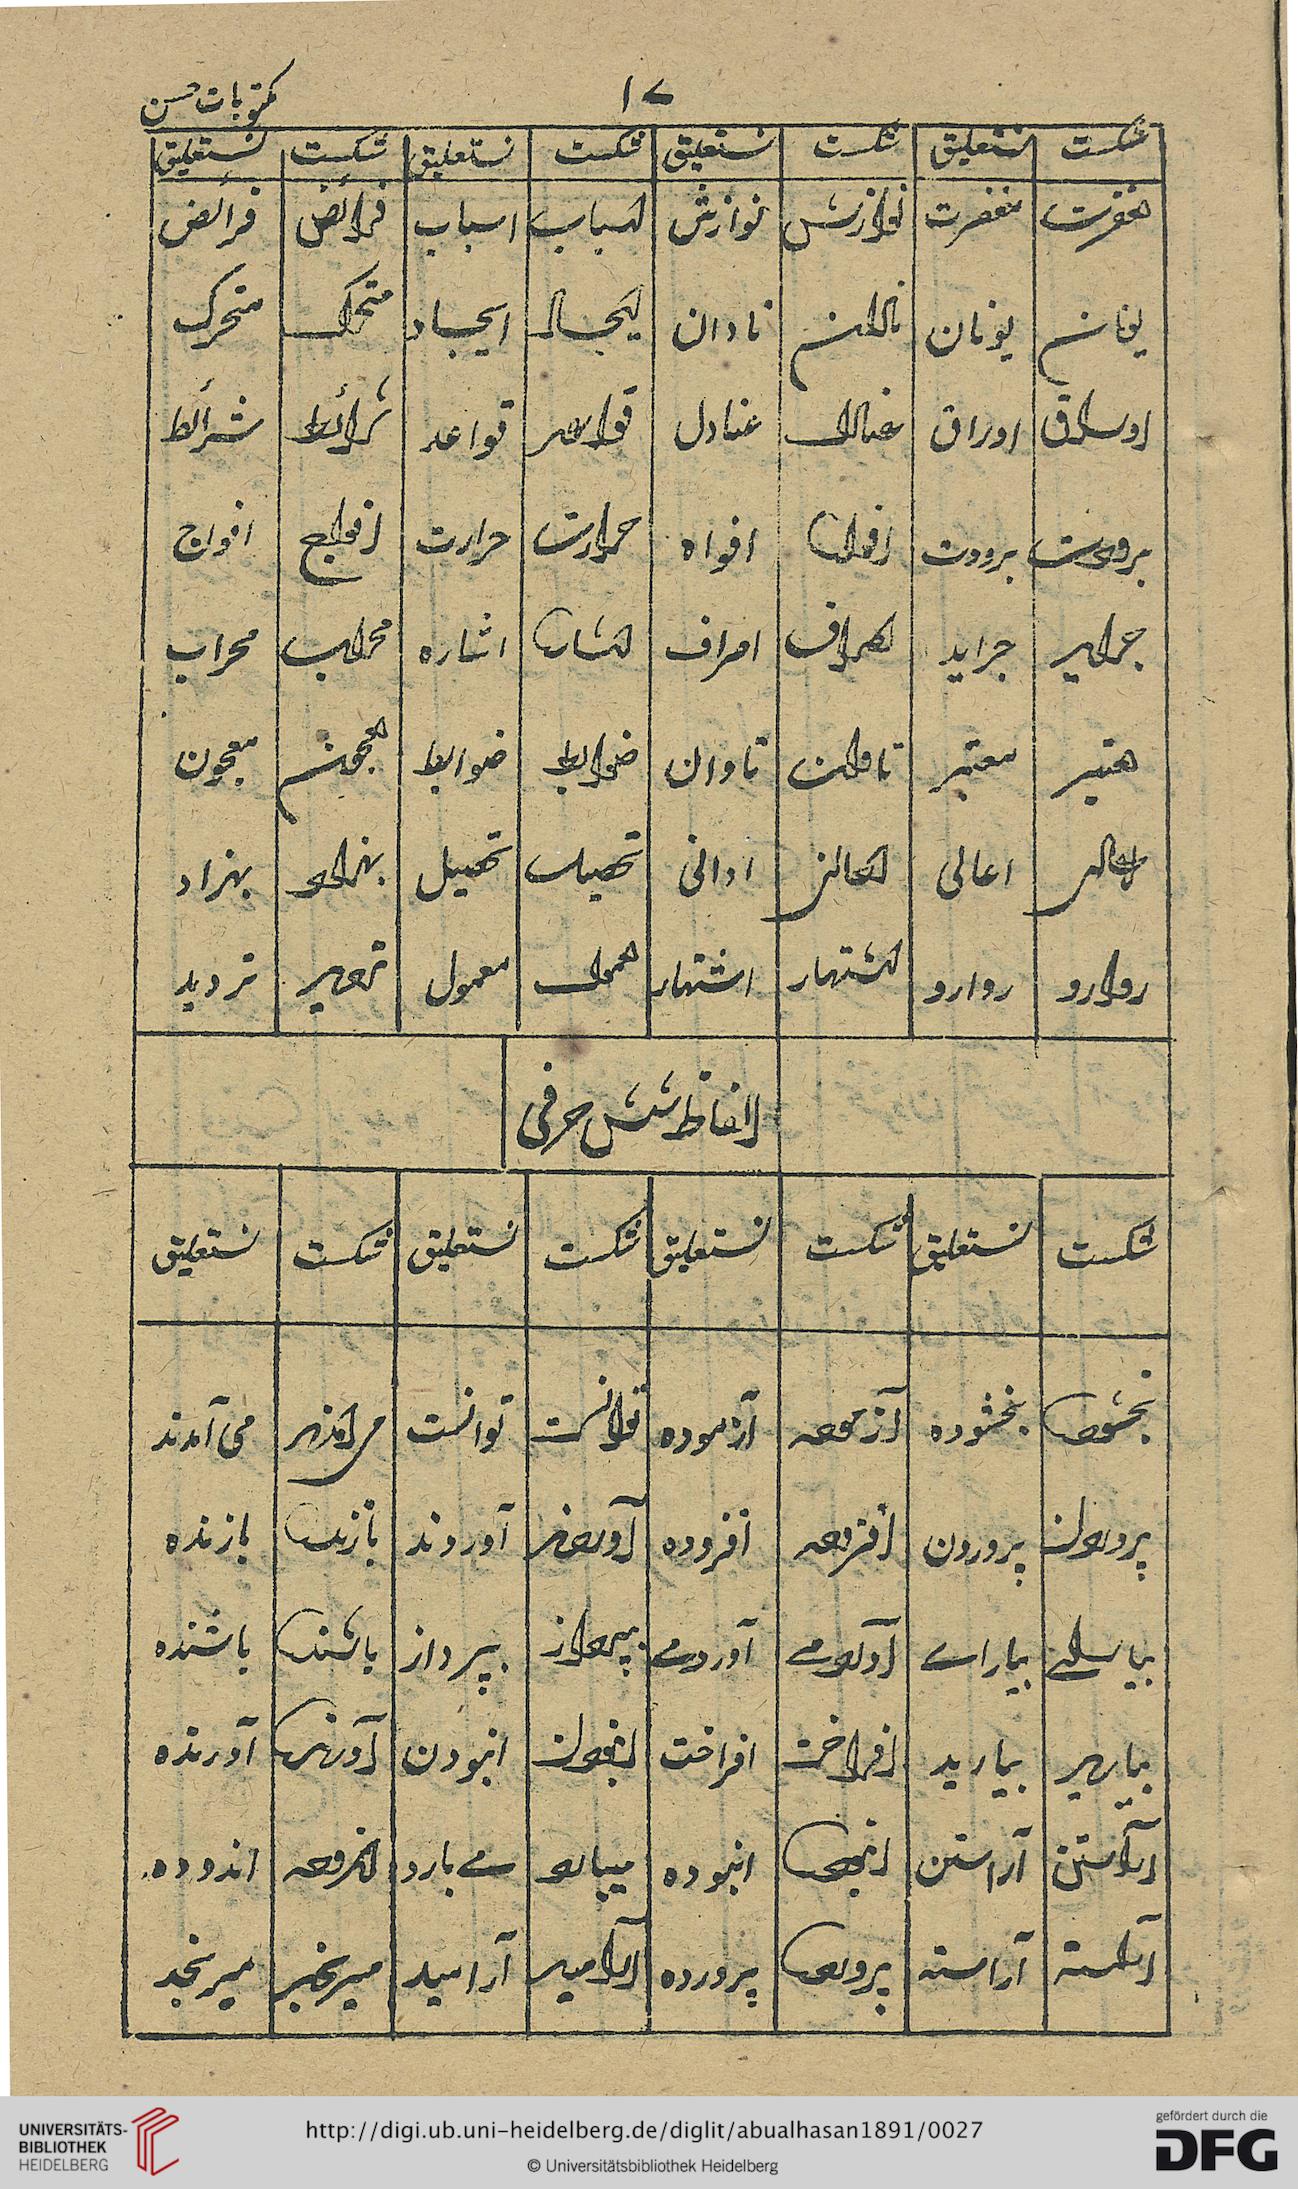 ۱۷
مکتوبات حسن
شکست نستعلیق شکست نستعلیق شکست نستعلیق شکست نستعلیق
مغفرت مغفرت نوازش نوازش اسباب اسباب فرائض فرائض
یونان یونان نادان نادان ایجاد ایجاد متحرک متحرک
اوراق اوراق عنادل عنادل قواعد قواعد شرائط شرائط
برودت برودت افواه افواه حرارت حرارت افواج افواج
جراید جراید اصراف اصراف اشاره اشاره محراب محراب
معتبر معتبر تاوان تاوان ضوابط ضوابط معجون معجون
اعالی اعالی ادانی ادانی تحصیل تحصیل بهزاد بهزاد
روارو روارو اشتهار اشتهار معمول معمول تردید تردید
الفاظ شش حرفی
شکست نستعلیق شکست نستعلیق شکست نستعلیق شکست نستعلیق
بخشوده بخشوده آزموده آزموده توانست توانست می آمدند می آمدند
پروردن پروردن افزوده افزوده آوردند آوردند بازنده بازنده
بیارائے بیاراے آوردمے آوردمے بپرداز بپرداز باشنده باشنده
بیارید بیارید افراخت افراخت انبودن انبودن آورنده آورنده
آراستن آراستن انبوده انبوده میبارد مے بارد اندوده اندوده
آراسته آراسته پرورده پرورده آرامید آرامید میرنجد میرنجد
UNIVERSITÄTS-
BIBLIOTHEK
HEIDELBERG
http://digi.ub.uni-heidelberg.de/diglit/abualhasan1891/0027
© Universitätsbibliothek Heidelberg
gefördert durch die
DFG